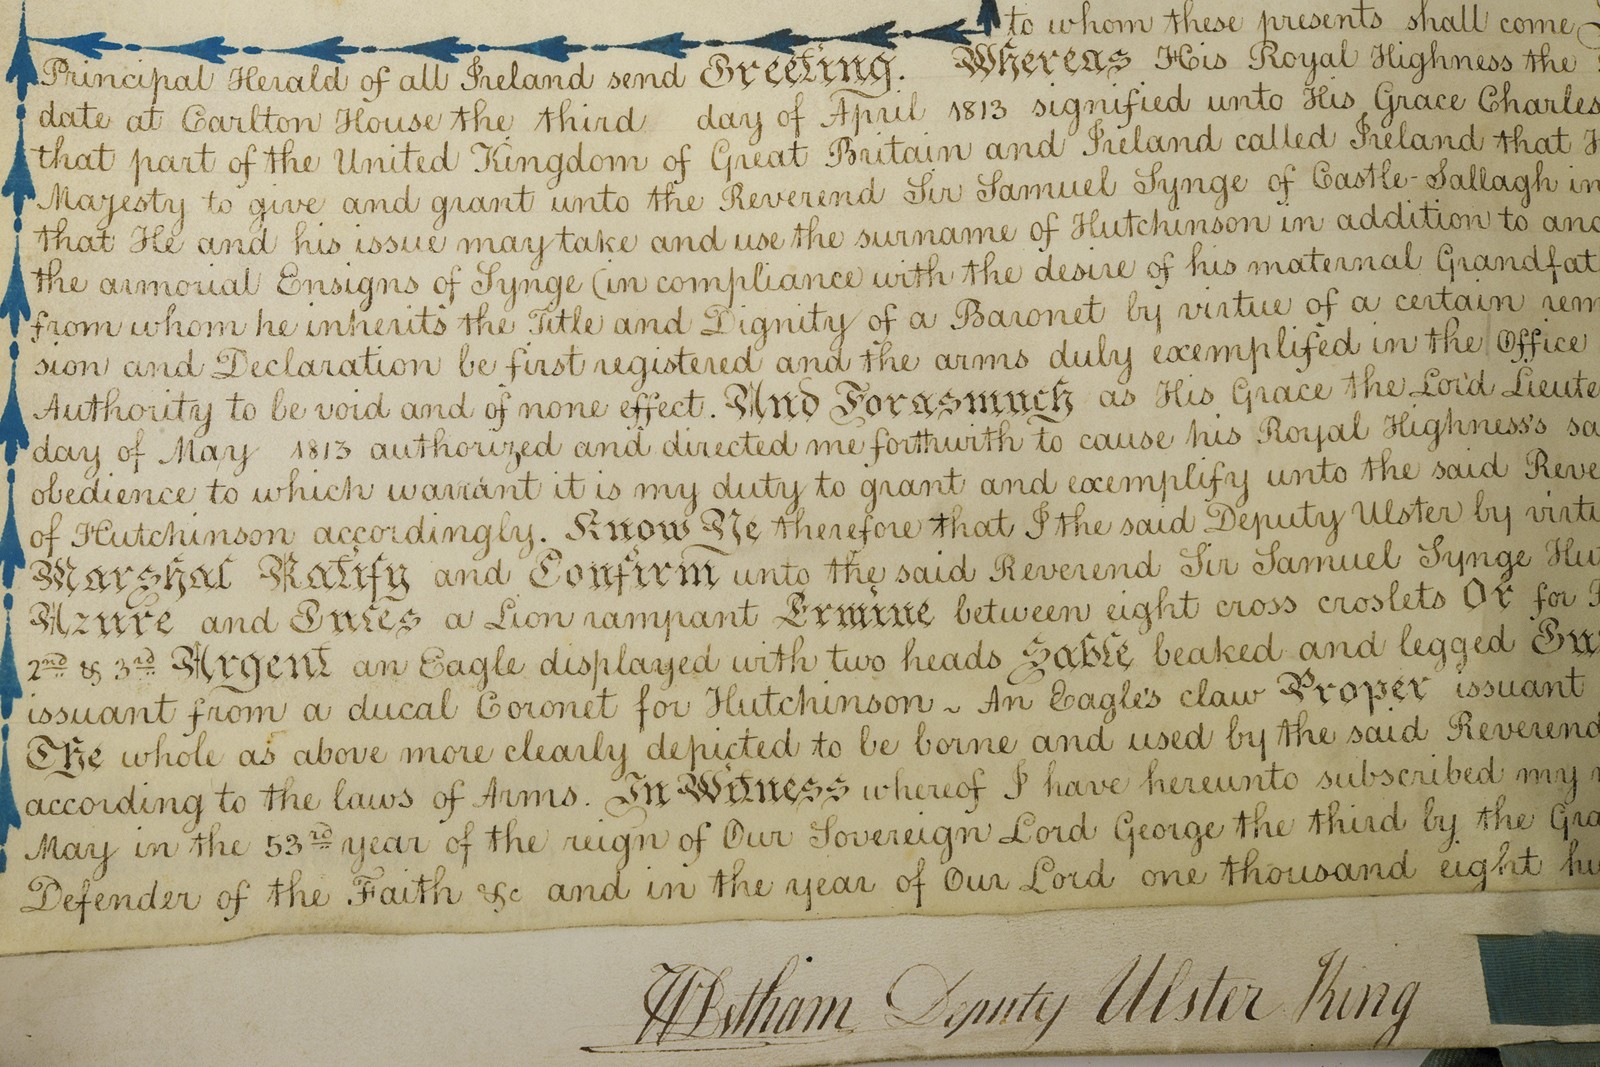 to whom these presents shall come
Principal Herald of all Ireland send Greeting. Whereas His Royal Highness the
date at Carlton House the third day of April 1813 signified unto His Grace Charles
that part of the United Kingdom of Great Britain and Ireland called Ireland that H
Majesty to give and grant unto the Reverend Sir Samuel Synge of Castle-Sallagh in
that He and his issue may take and use the surname of Hutchinson in addition to and
the armorial Ensigns of Synge (in compliance with the desire of his maternal Grandfat
from whom he inherits the Title and Dignity of a Baronet by virtue of a certain rem
sion and Declaration be first registered and the arms duly exemplified in the Office
Authority to be void and of none effect. And Forasmuch as His Grace the Lord Lieute
day of May 1813 authorized and directed me forthwith to cause his Royal Highness's sa
obedience to which warrant it is my duty to grant and exemplify unto the said Reve
of Hutchinson accordingly. Know Ye therefore that I the said Deputy Ulster by virtu
Marshal Ratify and Confirm unto the said Reverend Sir Samuel Synge Hut
Azure and Gules a Lion rampant Ermine between eight cross croslets Or for
2nd & 3rd Argent an Eagle displayed with two heads Sable beaked and legged Gu
issuant from a ducal Coronet for Hutchinson ~ An Eagle's claw Proper issuant
The whole as above more clearly depicted to be borne and used by the said Reverend
according to the laws of Arms. In Witness whereof I have hereunto subscribed my
May in the 53rd year of the reign of Our Sovereign Lord George the third by the Gra
Defender of the Faith &c and in the year of Our Lord one thousand eight hu
WBetham Deputy Ulster King